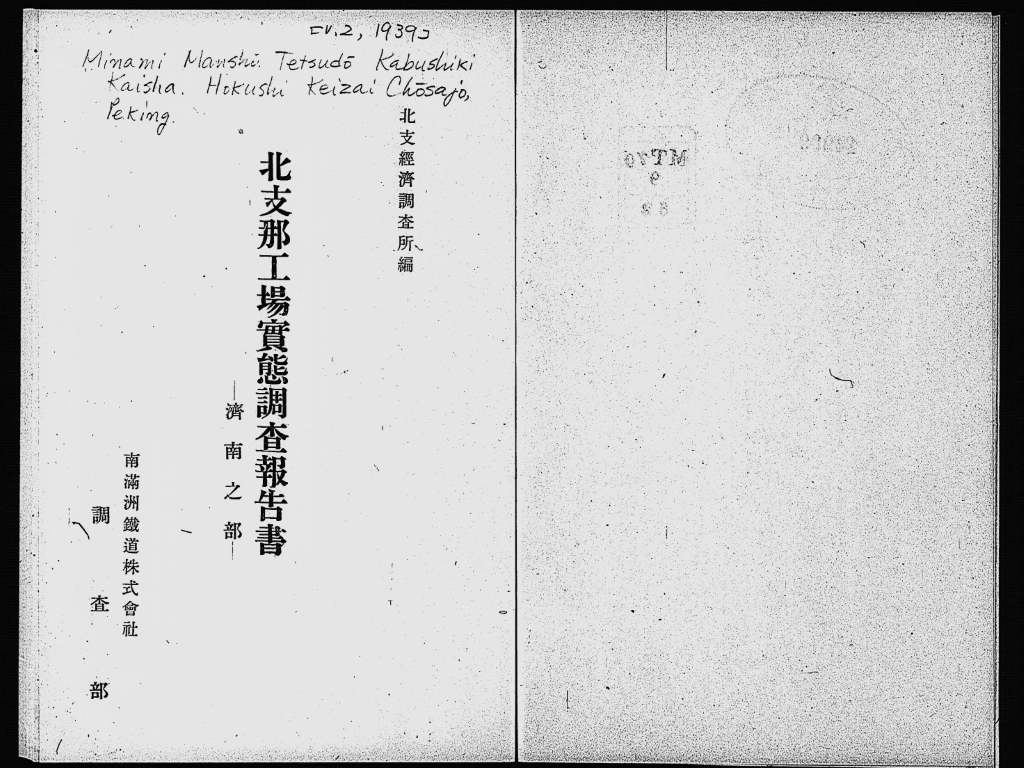 [v.2, 1939]
Minami Manshū Tetsudō Kabushiki
Kaisha. Hokushi Keizai Chōsajo,
Peking.
北支經濟調査所編
北支那工場實態調査報告書
—濟南之部—
南滿洲鐵道株式會社
調査部
MT70
9